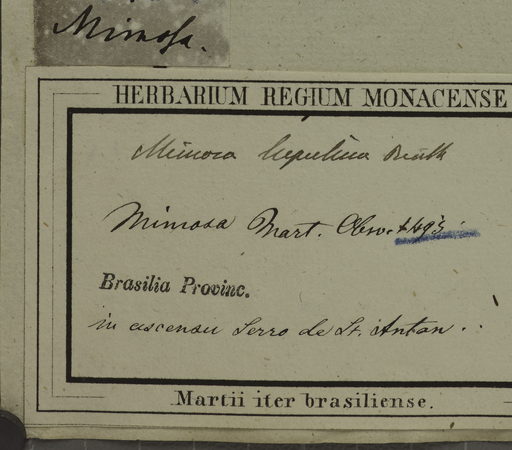 Mimosa.
HERBARIUM REGIUM MONACENSE
Mimosa lupulina Benth
Mimosa Mart. Obs.
Brasilia Provinc.
in ascensu Serro de St. Anton.
Martii iter brasiliense.